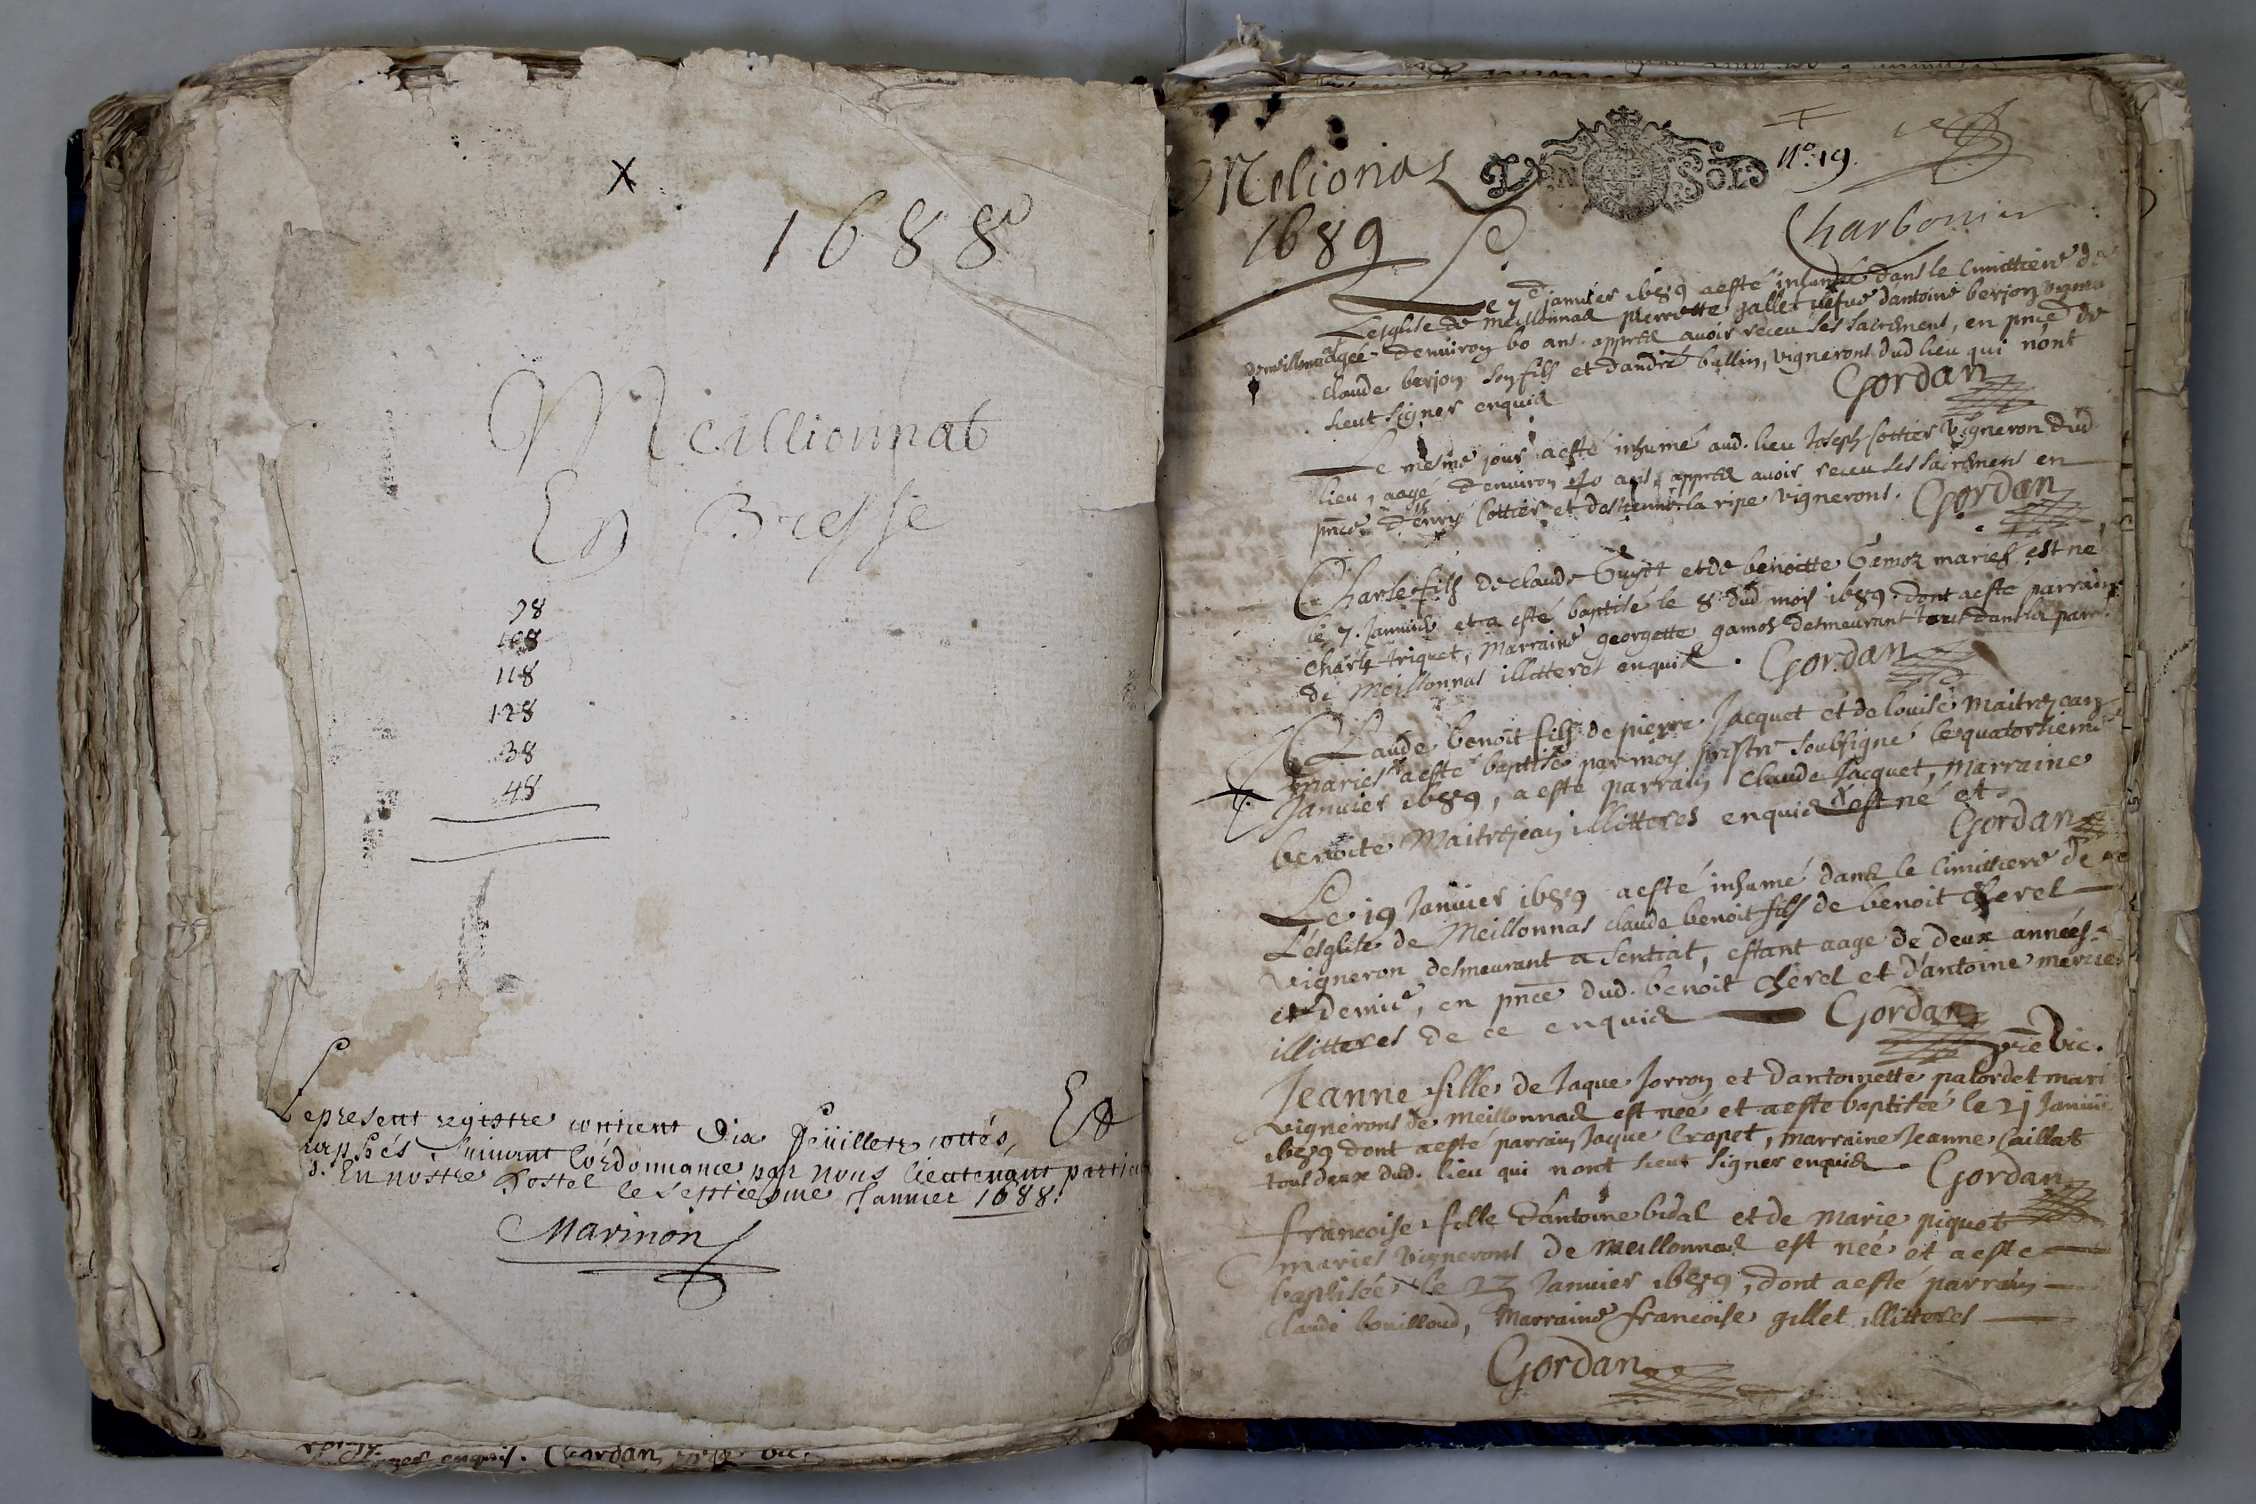 X
1688
Meillionnat
En Bresse
98
108
118
128
38
48
Le present registre contient dix feüilletz cottés, Et
suivant l'ordonnance par nous lieutenant
En nostre hostel le septiesme Janvier 1688.
Marinon
enquis. Gordan vic.
Melionas VN SOL N.º 19.
1689
Charbonier
Le 7e janvier 1689 a esté inhumée dans le cimittiere de
Lesglise de Meillonnas pierrette gallet vefve dantoine berjon
de meillonas agée denviron 60 ans, appres avoir receu les sacremens, en pnce de
claude berjon son fils et dandré bullin, vignerons dud lieu qui nont
sceut signer enquis Gordan
Le mesme jour a esté inhumé aud. lieu Joseph Cottier vigneron dud
lieu, aagé denviron 40 ans, appres avoir receu les sacremens en
pnce Cottier et la ripe vignerons. Gordan
Charle fils de claude Guyot et de benoitte Gamoz mariés est né
le 7. Janvier et a esté baptisé le 8 dud mois 1689. dont a este parrain
Charle triquet, Marraine georgette gamos desmeurant tous dans la parr.
de Meillonnas illitteres enquis. Gordan
Claude benoit fils de pierre Jacquet et de louise Maitrejean
mariés a esté baptisé par moy prestre soubsigné le quatorsieme
Janvier 1689, a esté parrain Claude Jacquet, Marraine
benoite Maitrejean illitteres enquis est né et
Gordan
Le 19 Janvier 1689 a esté inhumé dans le cimittiere de
L'esglise de Meillonnas claude benoit fils de benoit cherel
vigneron desmeurant a Sentiat, estant aage de deux années
et demie, en pnce dud. benoit cherel et d'antoine mercier
illitteres de ce enquis Gordan
pre Vic.
Jeanne fille de Jaque Jorron et dantoinette palordet mari
vignerons de Meillonnas est née et a este baptisée le 21 Janvier
1689 dont a este parrain Jaque Crapet, marraine Jeanne Caillat
tous deux dud. lieu qui nont sceut signer enquis. Gordan
francoise fille d'antoine vidal et de Marie piquet
mariés vignerons de Meillonnas est née et a este
baptisée le 23 Janvier 1689, dont a esté parrain
Claude bouilloud, Marraine francoise gillet illitteres
Gordan